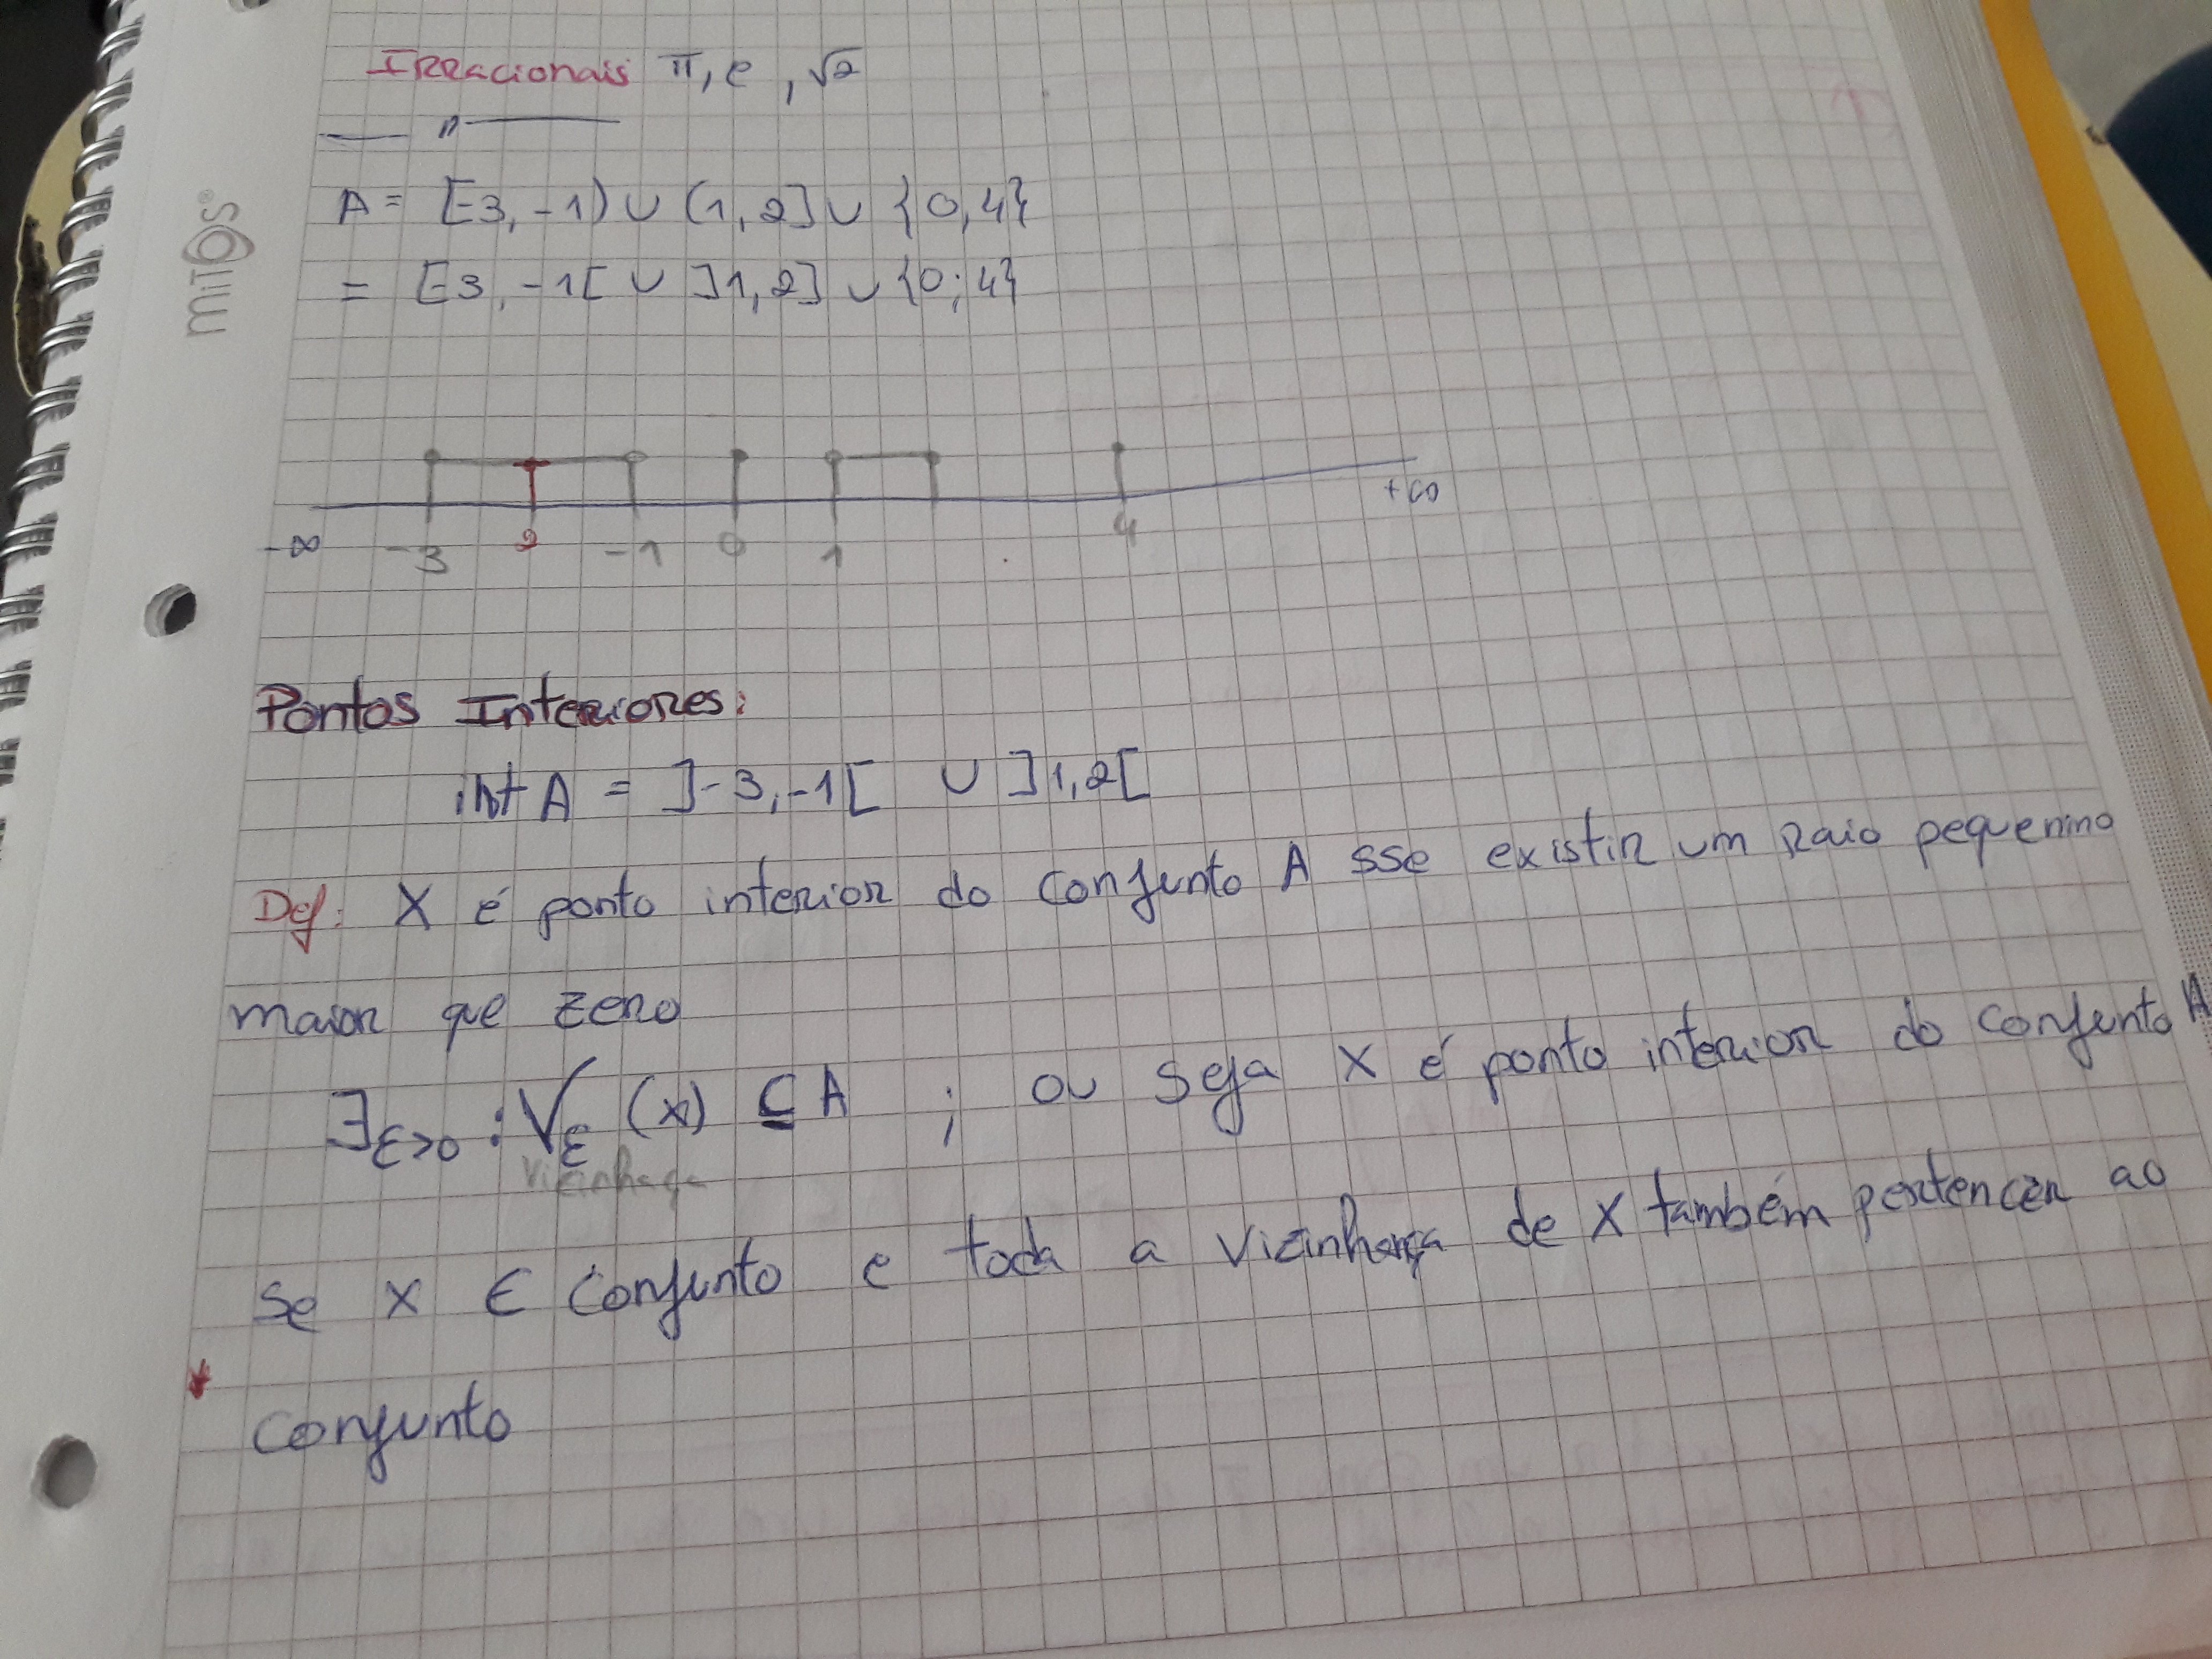 Irracionais π, e, √2
— " —
A = [-3, -1) ∪ (1, 2] ∪ {0, 4}
= [-3, -1[ ∪ ]1, 2] ∪ {0; 4}
mitos®
-∞ -3 2 -1 0 1 4 +∞
Pontos Interiores:
int A = ]-3, -1[ ∪ ]1, 2[
Def: X é ponto interior do conjunto A sse existir um raio pequenino
maior que zero
∃ε>0 : Vε (x) ⊆ A ; ou seja X é ponto interior do conjunto A
Vizinhança
se X ∈ conjunto e toda a vizinhança de X também pertencer ao
conjunto